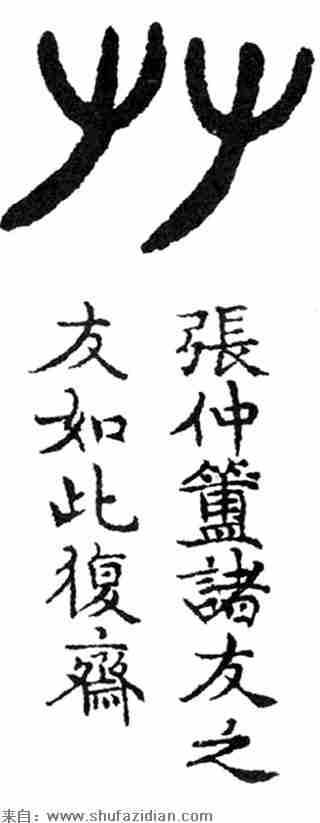 友
張仲簠諸友之
友如此復齋
来自：www.shufazidian.com